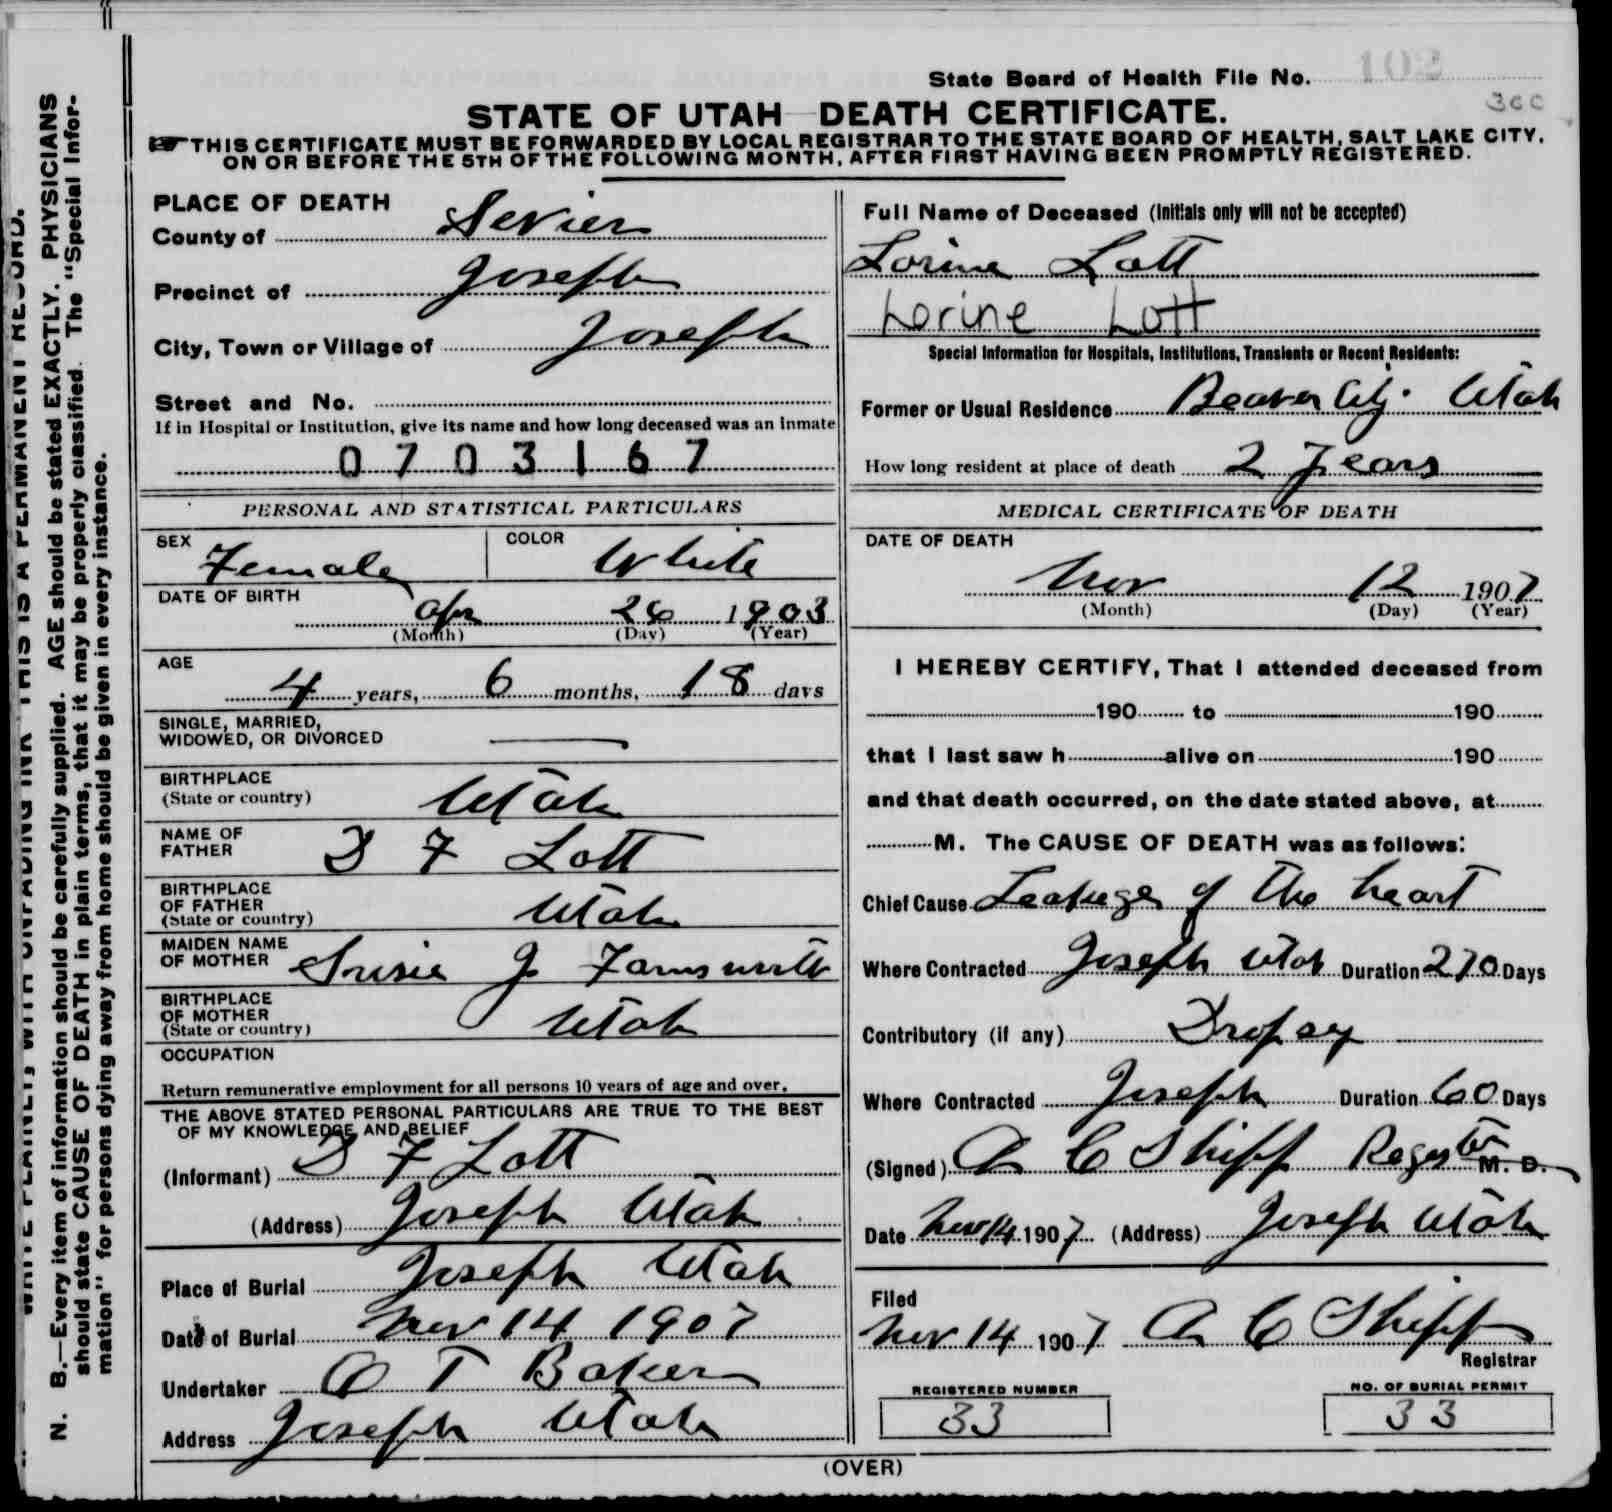 State Board of Health File No. 102
3cc
STATE OF UTAH—DEATH CERTIFICATE.
THIS CERTIFICATE MUST BE FORWARDED BY LOCAL REGISTRAR TO THE STATE BOARD OF HEALTH, SALT LAKE CITY,
ON OR BEFORE THE 5TH OF THE FOLLOWING MONTH, AFTER FIRST HAVING BEEN PROMPTLY REGISTERED.
WRITE PLAINLY, WITH UNFADING INK—THIS IS A PERMANENT RECORD.
N. B.—Every item of information should be carefully supplied. AGE should be stated EXACTLY. PHYSICIANS
should state CAUSE OF DEATH in plain terms, that it may be properly classified. The "Special Infor-
mation" for persons dying away from home should be given in every instance.
PLACE OF DEATH
County of Sevier
Precinct of Joseph
City, Town or Village of Joseph
Street and No.
If in Hospital or Institution, give its name and how long deceased was an inmate
0703167
PERSONAL AND STATISTICAL PARTICULARS
SEX Female COLOR White
DATE OF BIRTH
Apr 26 1903
(Month) (Day) (Year)
AGE
4 years, 6 months, 18 days
SINGLE, MARRIED,
WIDOWED, OR DIVORCED
BIRTHPLACE
(State or country) Utah
NAME OF
FATHER D F Lott
BIRTHPLACE
OF FATHER
(State or country) Utah
MAIDEN NAME
OF MOTHER Susie J Farnsworth
BIRTHPLACE
OF MOTHER
(State or country) Utah
OCCUPATION
Return remunerative employment for all persons 10 years of age and over.
THE ABOVE STATED PERSONAL PARTICULARS ARE TRUE TO THE BEST
OF MY KNOWLEDGE AND BELIEF
(Informant) D F Lott
(Address) Joseph Utah
Place of Burial Joseph Utah
Date of Burial Nov 14 1907
Undertaker O T Baker
Address Joseph Utah
Full Name of Deceased (Initials only will not be accepted)
Lorine Lott
Lorine Lott
Special Information for Hospitals, Institutions, Transients or Recent Residents:
Former or Usual Residence Beaver City. Utah
How long resident at place of death 2 Years
MEDICAL CERTIFICATE OF DEATH
DATE OF DEATH
Nov 12 1907
(Month) (Day) (Year)
I HEREBY CERTIFY, That I attended deceased from
190 to 190
that I last saw h alive on 190
and that death occurred, on the date stated above, at
M. The CAUSE OF DEATH was as follows:
Chief Cause Leakage of the heart
Where Contracted Joseph Utah Duration 270 Days
Contributory (if any) Dropsy
Where Contracted Joseph Duration 60 Days
(Signed) A C Shipp Register M. D.
Date Nov 14 1907 (Address) Joseph Utah
Filed
Nov 14 1907 A C Shipp
Registrar
REGISTERED NUMBER
33
NO. OF BURIAL PERMIT
33
(OVER)